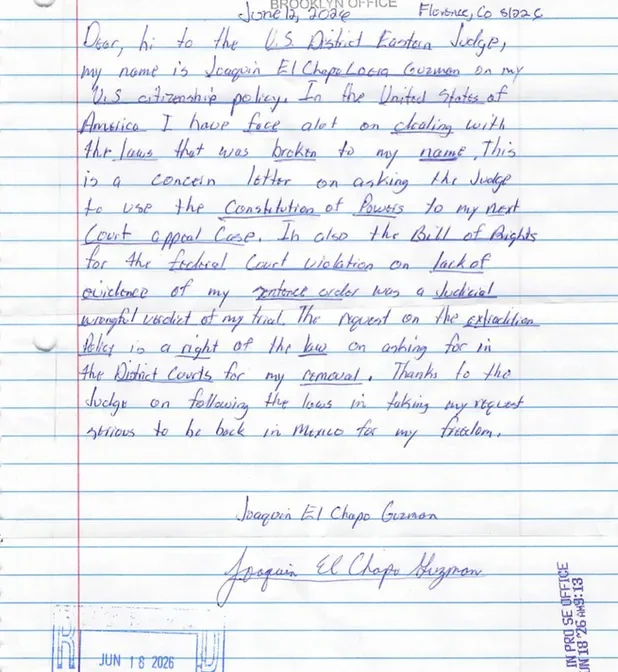 BROOKLYN OFFICE
June 12, 2026 Florence, Co 81226
Dear, hi to the U.S. District Eastern Judge,
my name is Joaquin El Chapo Loera Guzman on my
U.S citizenship policy. In the United States of
America I have face alot on dealing with
the laws that was broken to my name. This
is a concern letter on asking the Judge
to use the Constitution of Powers to my next
Court appeal Case. In also the Bill of Rights
for the federal Court violation on lack of
evidence of my sentence order was a Judicial
wrongful verdict of my trial. The request on the extradition
Policy is a right of the law on asking for in
the District Courts for my removal. Thanks to the
Judge on following the laws in taking my request
serious to be back in Mexico for my freedom.
Joaquin El Chapo Guzman
Joaquin El Chapo Guzman
JUN 18 2026
IN PRO SE OFFICE
JUN 18 '26 AM9:13